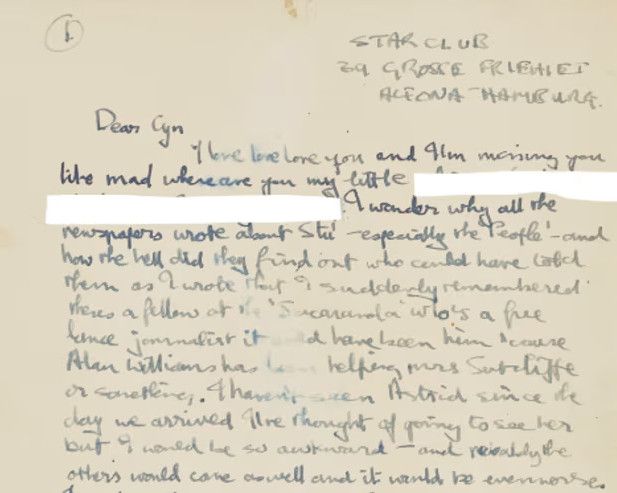 1
STAR CLUB
39 GROSSE FRIEHIET
ALTONA HAMBURG.
Dear Cyn
I love love love you and I'm missing you
like mad where are you my little
I wonder why all the
newspapers wrote about Stu - especially the 'People' - and
how the hell did they find out who could have told
them as I wrote that I suddenly remembered
theres a fellow at the 'Jacaranda' who's a free
lance journalist it have been him 'cause
Alan Williams has been helping mrs Sutcliffe
or something. I haven't seen Astrid since the
day we arrived I've thought of going to see her
but I would be so awkward - and probably the
others would come as well and it would be even worse.